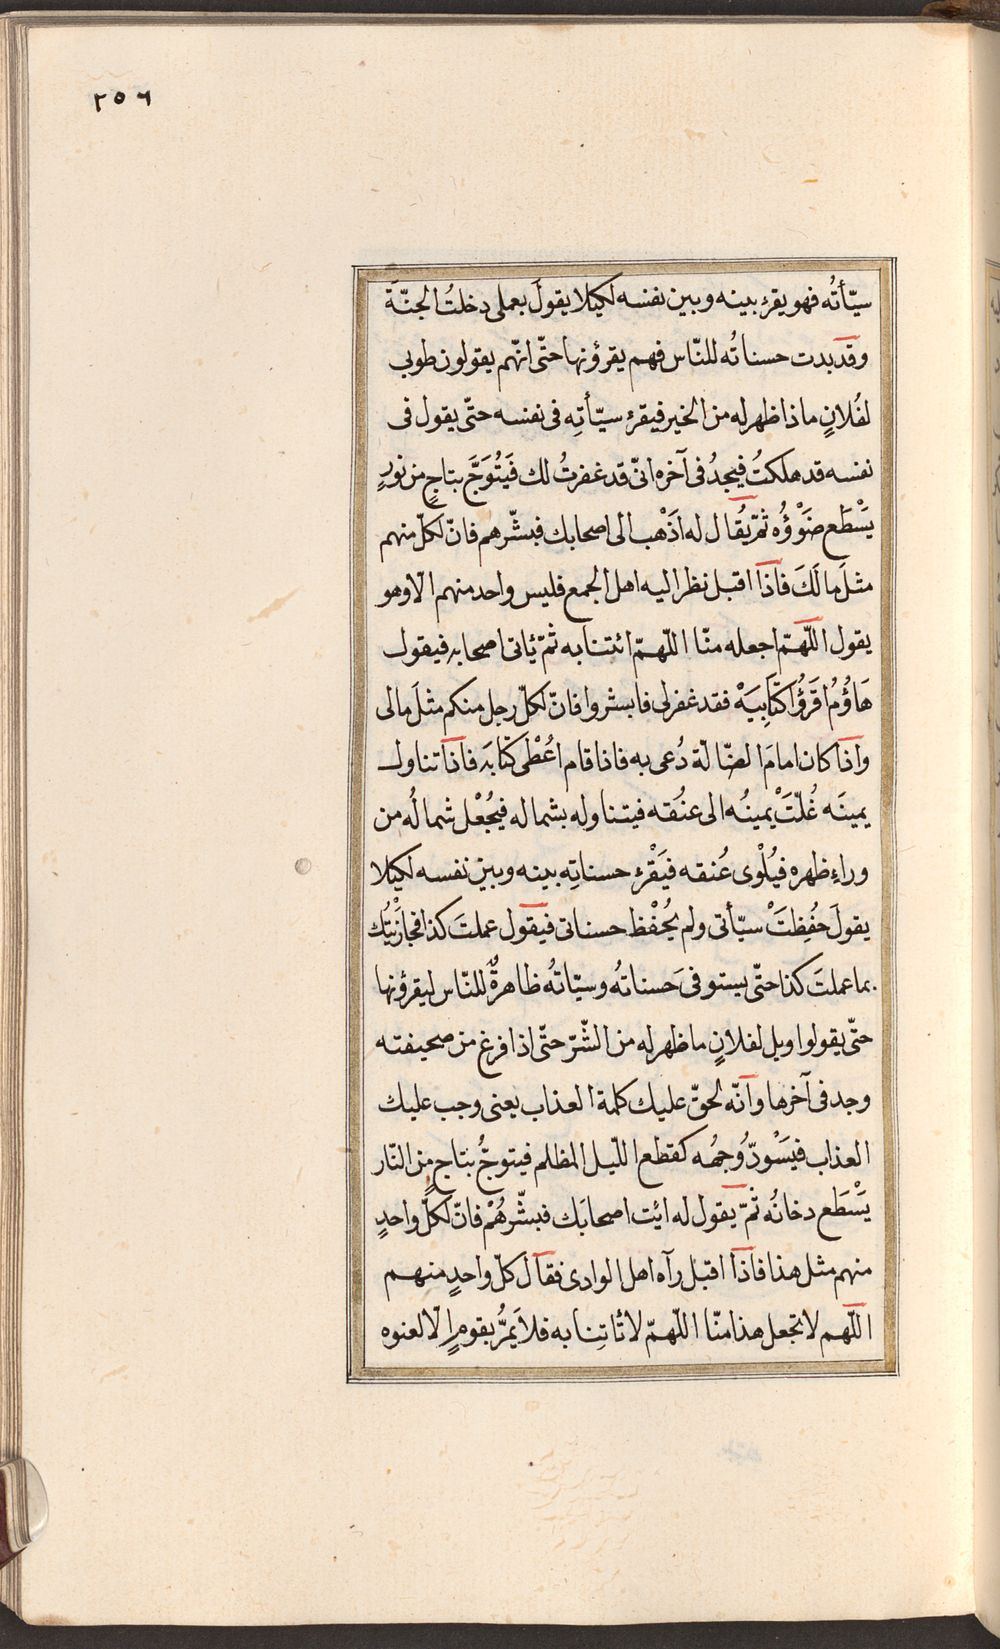 ٢٥٦
سيّأتُه فهو يقرء بينه وبين نفسه لكيلا يقولَ بعملى دخلتُ الجنّة
وقد بدت حسناتُه للنّاس فهم يقرؤنها حتّى انّهم يقولون طوبى
لفُلانٍ ماذا ظهر له من الخير فيقرء سيّأتِه فى نفسه حتّى يقول فى
نفسه قد هلكتُ فيجدُ فى آخره انّى قد غفرتُ لك فَيُتَوَّجَ بتاجٍ من نورٍ
يَسْطَع ضَوْؤُه ثمّ يُقال له اذْهب الى اصحابك فبشّرهم فانّ لكلّ منهم
مثلَ مالَكَ فاذا اقبل نظر اليه اهل الجمع فليس واحد منهم الّا وهو
يقول اللّهمّ اجعله منّا اللّهمّ ائتنا به ثمّ يأتى اصحابه فيقول
هَاؤُمُ اقرَؤُا كتابِيَهْ فقد غفر لى فابشروا فانّ لكلّ رجل منكم مثلَ مالى
واذا كان امامَ الضّالّة دُعى به فاذا قام اعُطْى كتابَه فاذا تناول
يمينَه غُلّتَ يمينُه الى عنُقه فيتناوله بشماله فيُجْعل شمالُه من
وراءِ ظهره فيُلْوى عُنقه فيَقْرء حسناتِه بينه وبين نفسه لكيلا
يقولَ حُفِظتَ سيّأتى ولم يُحْفظ حسناتى فيقول عملتَ كذا فجازَيْتُك
بما عملتَ كذا حتّى يستوفىَ حسناتُه وسيّاتُه ظاهرةٌ للنّاس ليقرؤنها
حتّى يقولوا ويل لفلانٍ ما ظهر له من الشّرّ حتّى اذا فرغ من صحيفته
وجد فى آخرها وانّه لحقّ عليك كلمة العذاب يعنى وجب عليك
العذاب فيَسْودّ وُجهُه كقطع اللّيل المظلم فيتوجُّ بتاجٍ من النّار
يَسْطَع دخانُه ثمّ يقول له ائت اصحابَك فبشّرهُمْ فانّ لكلّ واحدٍ
منهم مثل هذا فاذا اقبل رآه اهل الوادى فقال كلّ واحدٍ منهم
اللّهم لا تجعل هذا منّا اللّهمّ لا تاتِنا به فلا يَمرُّ بقومٍ الّا لعنوه